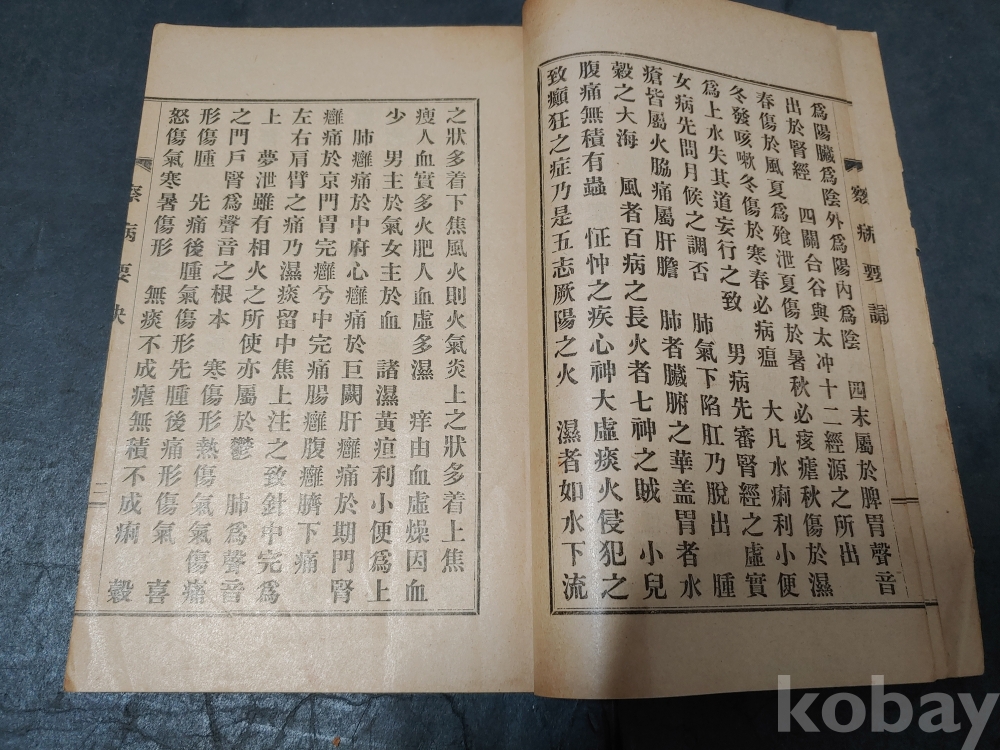 爲陽臟爲陰外爲陽內爲陰 四末屬於脾胃聲音
出於腎經 四關合谷與太冲十二經源之所出
春傷於風夏爲飧泄夏傷於暑秋必痎瘧秋傷於濕
冬發咳嗽冬傷於寒春必病瘟 大凡水痢利小便
爲上水失其道妄行之致 男病先審腎經之虛實
女病先問月候之調否 肺氣下陷肛乃脫出 腫
瘡皆屬火脇痛屬肝膽 肺者臟腑之華盖胃者水
穀之大海 風者百病之長火者七神之賊 小兒
腹痛無積有蟲 怔忡之疾心神大虛痰火侵犯之
致癲狂之症乃是五志厥陽之火 濕者如水下流
之狀多着下焦風火則火氣炎上之狀多着上焦
瘦人血實多火肥人血虛多濕 痒由血虛燥因血
少 男主於氣女主於血 諸濕黃疸利小便爲上
肺癰痛於中府心癰痛於巨闕肝癰痛於期門腎
癰痛於京門胃完癰兮中完痛腸癰腹癰臍下痛
左右肩臂之痛乃濕痰留中焦上注之致針中完爲
上 夢泄雖有相火之所使亦屬於鬱 肺爲聲音
之門戶腎爲聲音之根本 寒傷形熱傷氣氣傷痛
形傷腫 先痛後腫氣傷形先腫後痛形傷氣 喜
怒傷氣寒暑傷形 無痰不成瘧無積不成痢 穀
察病要訣
二